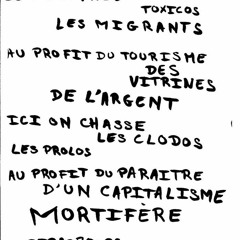 TOXICOS
LES MIGRANTS
AU PROFIT DU TOURISME
DES
VITRINES
DE L'ARGENT
ICI ON CHASSE
LES CLODOS
LES PROLOS
AU PROFIT DU PARAITRE
D'UN CAPITALISME
MORTIFÈRE